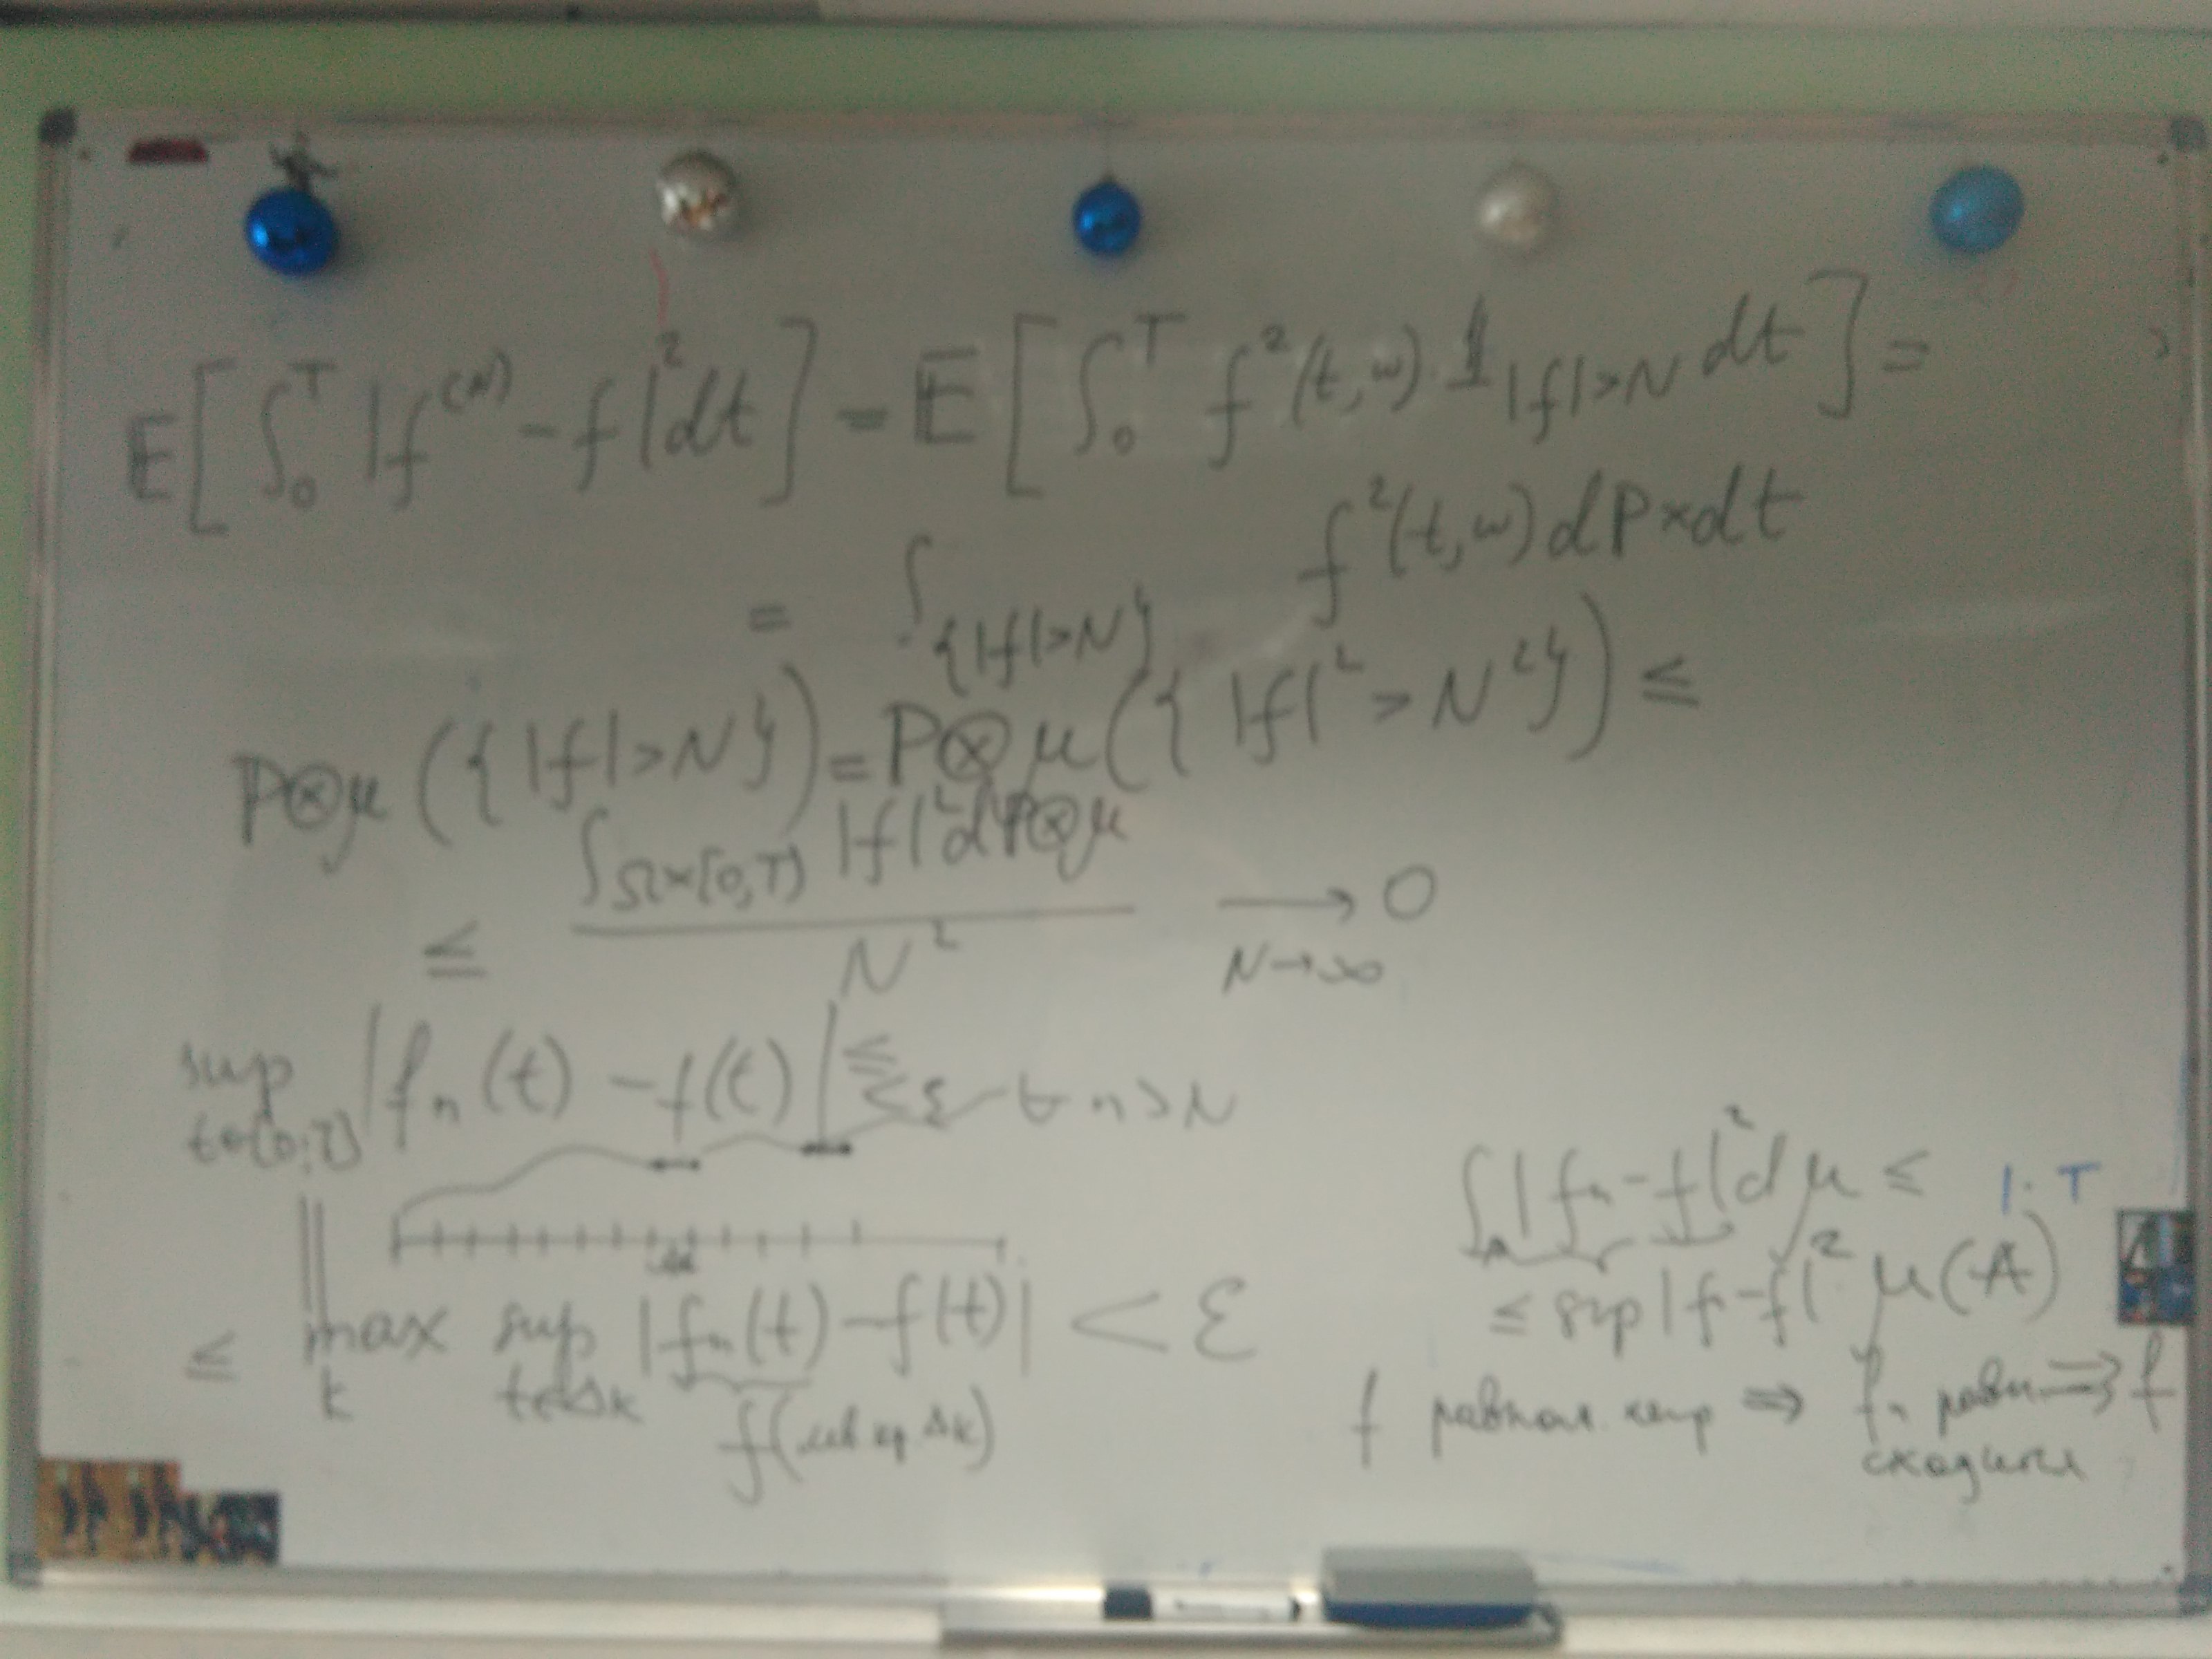 E[∫₀ᵀ |f⁽ᴺ⁾ - f|² dt] = E[∫₀ᵀ f²(t,ω)·1_{|f|>N} dt] =
= ∫_{{|f|>N}} f²(t,ω) dP×dt
P⊗μ({|f|>N}) = P⊗μ({|f|²>N²}) ≤
≤ ∫_{Ω×[0,T]} |f|² dP⊗μ / N² → 0
N→∞
sup_{t∈[0;T]} |fₙ(t) - f(t)| ≤ ε ∀ n>N
≤ max_k sup_{t∈Δₖ} |fₙ(t) - f(t)| < ε
f( кр Δₖ)
∫_A |fₙ - f|² dμ ≤ 1·T
≤ sup|f-f|² μ(A)
f равном. непр ⇒ fₙ равн ⇒ f
сходится